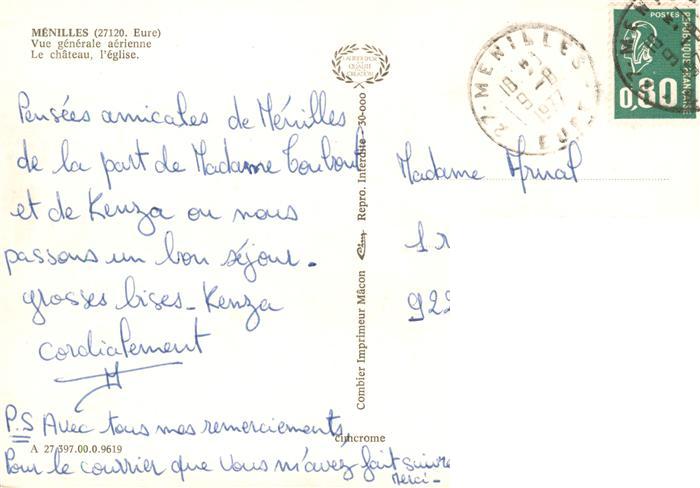 MÉNILLES (27120. Eure)
Vue générale aérienne
Le château, l'église.
Pensées amicales de Ménilles
de la part de Madame
et de Kenza ou nous
passons un bon séjour.
grosses bises - Kenza
cordialement
P.S Avec tous mes remerciements,
Pour le courrier que vous m'avez fait suivre
Merci -
A 27 397.00.0.9619
cimcrome
Combier Imprimeur Mâcon Cim Repro. Interdite - 30-000
27 - MENILLES
EURE
POSTES
0,80
REPUBLIQUE FRANÇAISE
Madame
1
922